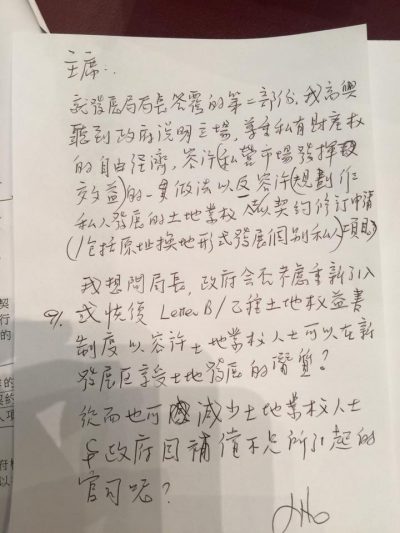 主席：
就發展局局長答覆的第二部份，我高興
聽到政府說明立場，尊重私有財產权
的自由經濟，容許(私營市場發揮
效益)的一貫做法以及容許(規劃作
私人發展的土地業权人以契約修訂申請
(包括原址換地形式發展個別私人項目)
我想問局長，政府會否考慮重新引入
Q. 或恢復 Letter B/乙種土地权益書
制度以容許土地業权人士可以在新
發展區享受土地發展的
從而也可減少土地業权人士
与政府因補償不足所引起的
官司呢？
契
行
的